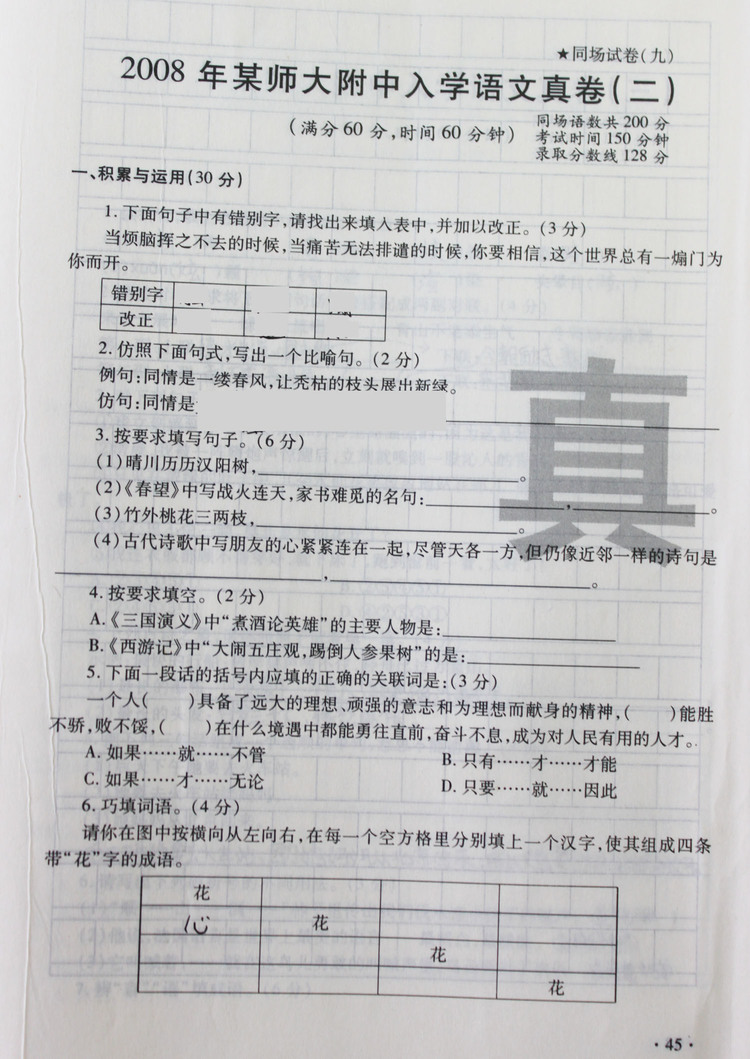 ★同场试卷(九)
2008年某师大附中入学语文真卷(二)
(满分60分,时间60分钟)
同场语数共200分
考试时间150分钟
录取分数线128分
一、积累与运用(30分)
1.下面句子中有错别字,请找出来填入表中,并加以改正。(3分)
当烦脑挥之不去的时候,当痛苦无法排遣的时候,你要相信,这个世界总有一煽门为
你而开。
错别字
改正
2.仿照下面句式,写出一个比喻句。(2分)
例句:同情是一缕春风,让秃枯的枝头展出新绿。
仿句:同情是
3.按要求填写句子。(6分)
(1)晴川历历汉阳树,。
(2)《春望》中写战火连天,家书难觅的名句:,。
(3)竹外桃花三两枝,。
(4)古代诗歌中写朋友的心紧紧连在一起,尽管天各一方,但仍像近邻一样的诗句是
,。
4.按要求填空。(2分)
A.《三国演义》中“煮酒论英雄”的主要人物是:
B.《西游记》中“大闹五庄观,踢倒人参果树”的是:
5.下面一段话的括号内应填的正确的关联词是:(3分)
一个人( )具备了远大的理想、顽强的意志和为理想而献身的精神,( )能胜
不骄,败不馁,( )在什么境遇中都能勇往直前,奋斗不息,成为对人民有用的人才。
A.如果……就……不管 B.只有……才……才能
C.如果……才……无论 D.只要……就……因此
6.巧填词语。(4分)
请你在图中按横向从左向右,在每一个空方格里分别填上一个汉字,使其组成四条
带“花”字的成语。
花
花
花
花
真
·45·